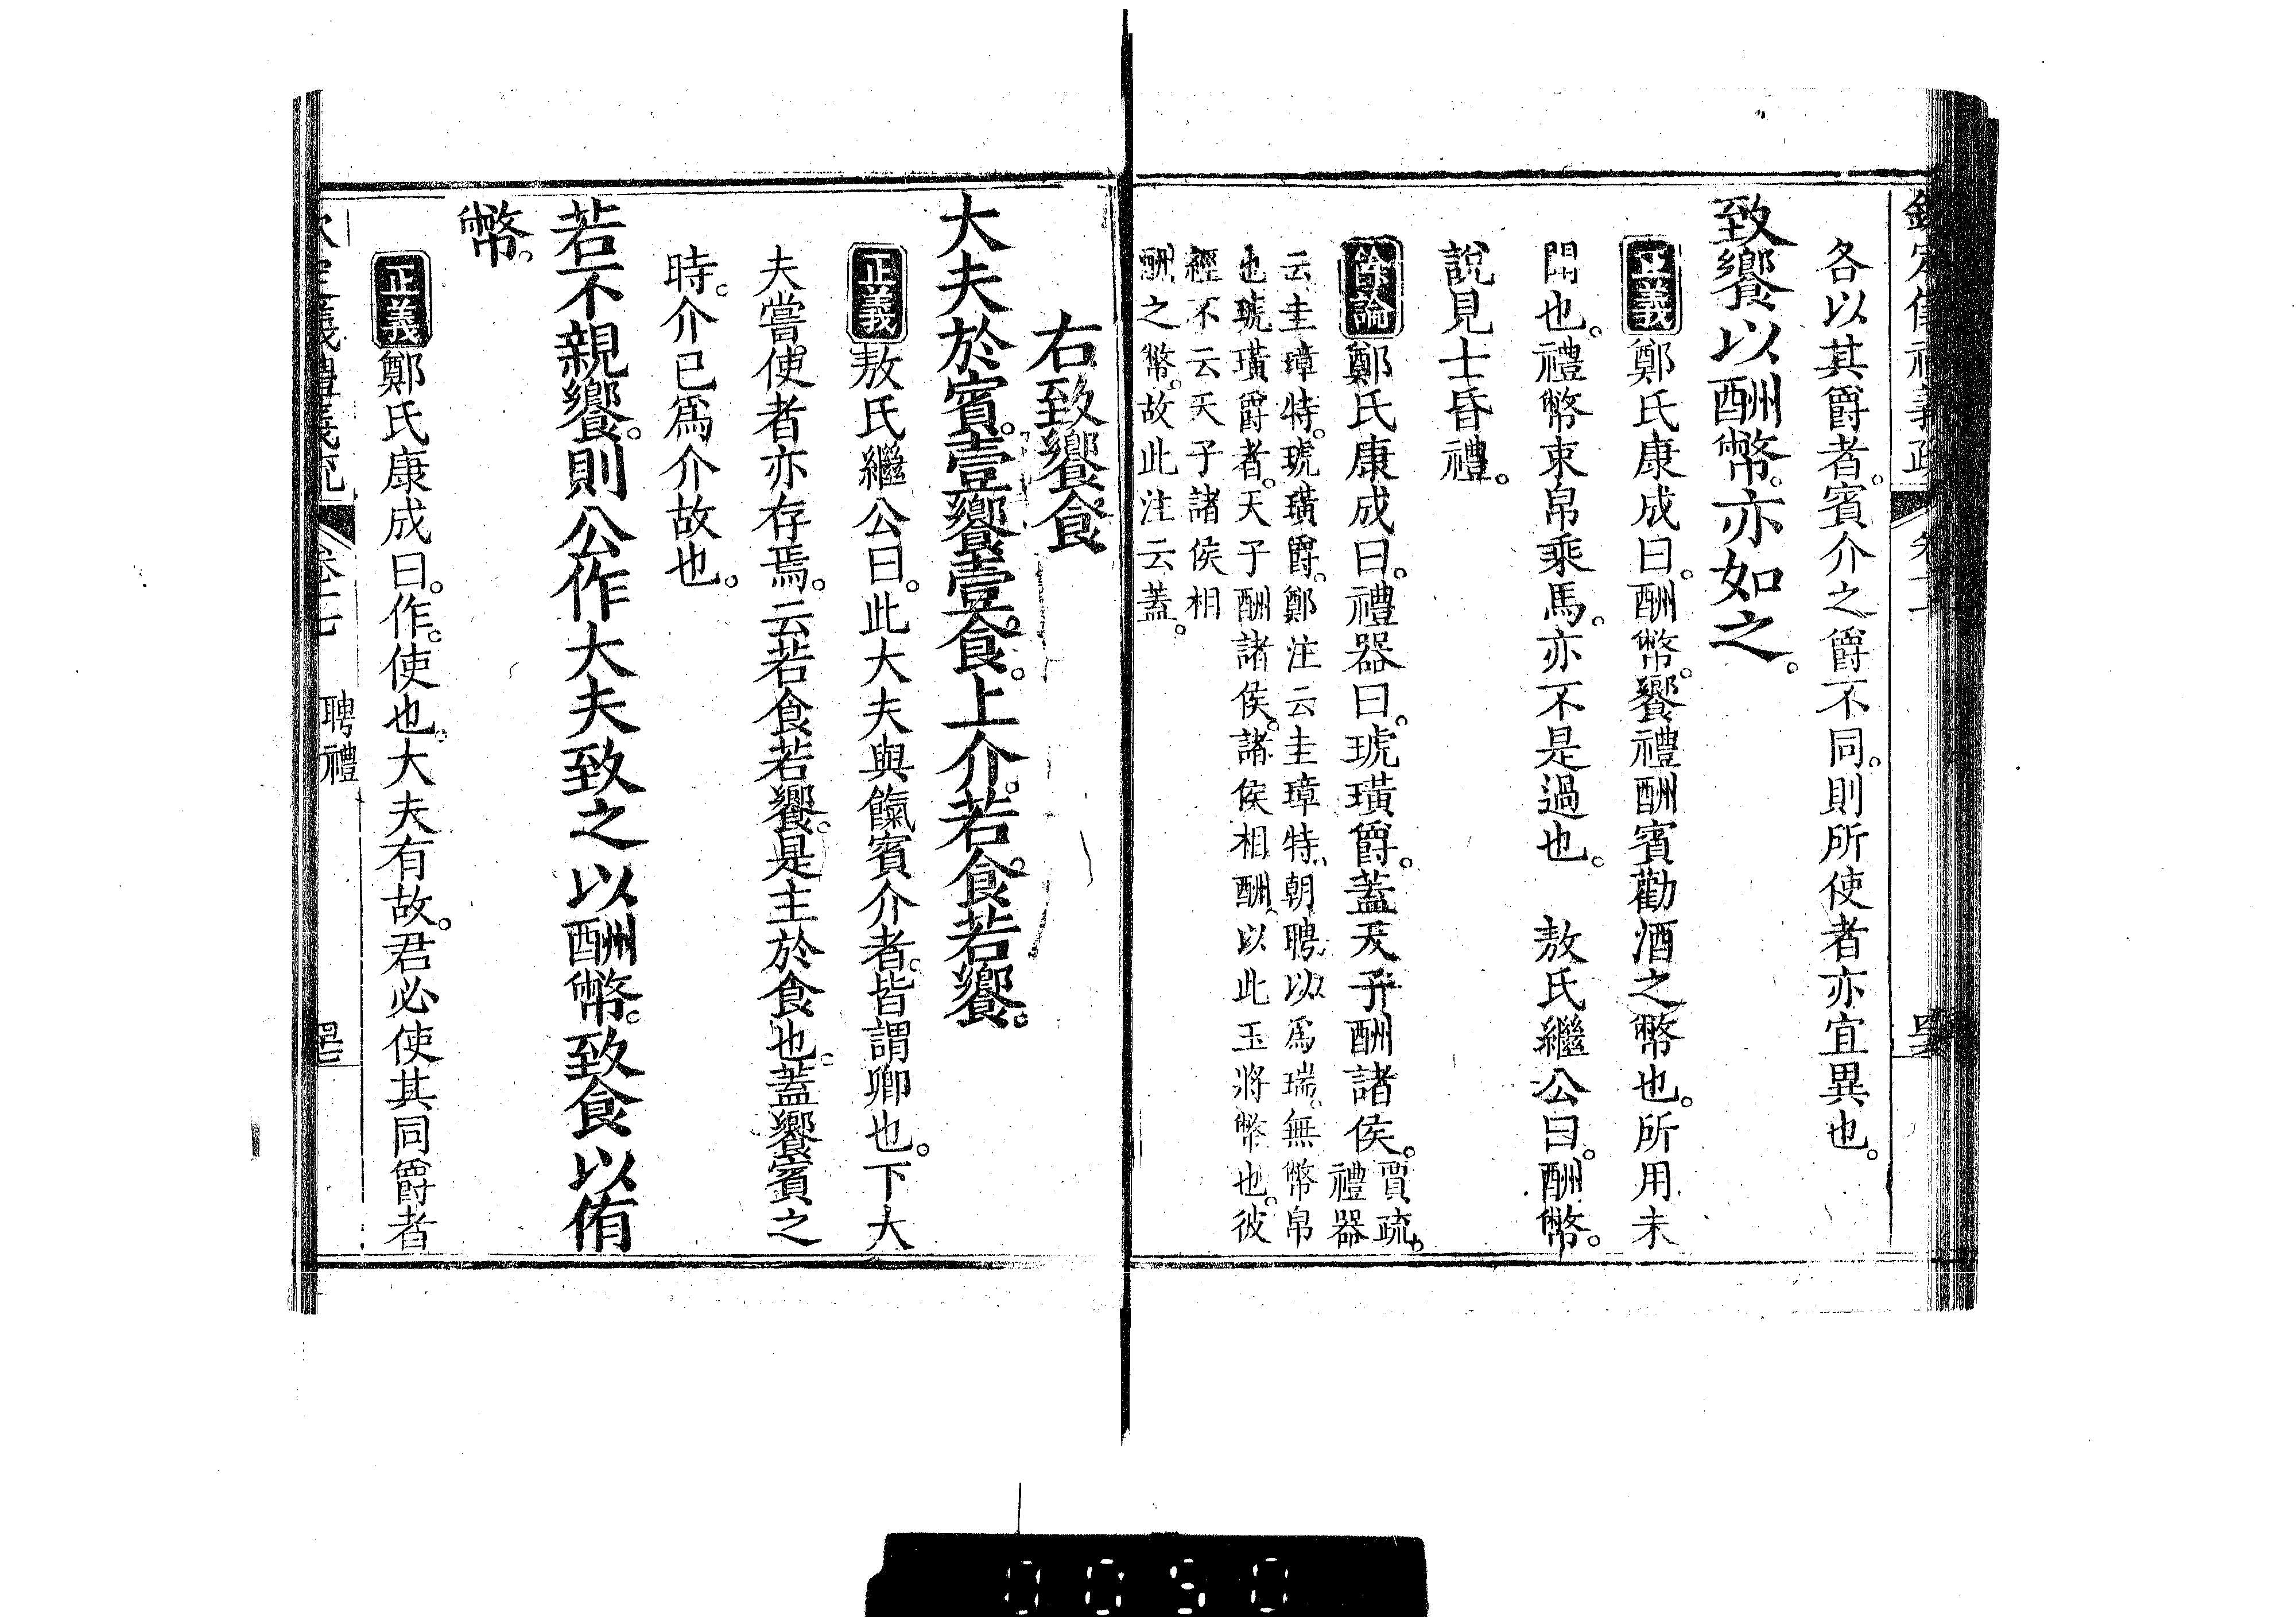 各以其爵者。賓介之爵不同。則所使者亦宜異也。
致饗以酬幣。亦如之。
正義鄭氏康成曰。酬幣。饗禮酬賓勸酒之幣也。所用未
聞也。禮幣束帛乘馬。亦不是過也。　敖氏繼公曰。酬幣。
說見士昏禮。
餘論鄭氏康成曰。禮器曰。琥璜爵。蓋天子酬諸侯。賈疏。
禮器
云圭璋特。琥璜爵。鄭注云圭璋特、朝聘以爲瑞。無幣帛
也琥璜爵者。天子酬諸侯。諸侯相酬、以此玉將幣也。彼
經不云天子諸侯相
酬之幣。故此注云蓋。
右致饗食
大夫於賓。壹饗壹食。上介。若食若饗。
正義敖氏繼公曰。此大夫與餼賓介者。皆謂卿也。下大
夫嘗使者亦存焉。云若食若饗。是主於食也。蓋饗賓之
時。介已爲介故也。
若不親饗。則公作大夫致之以酬幣。致食以侑
幣。
正義鄭氏康成曰。作。使也。大夫有故。君必使其同爵者
聘禮